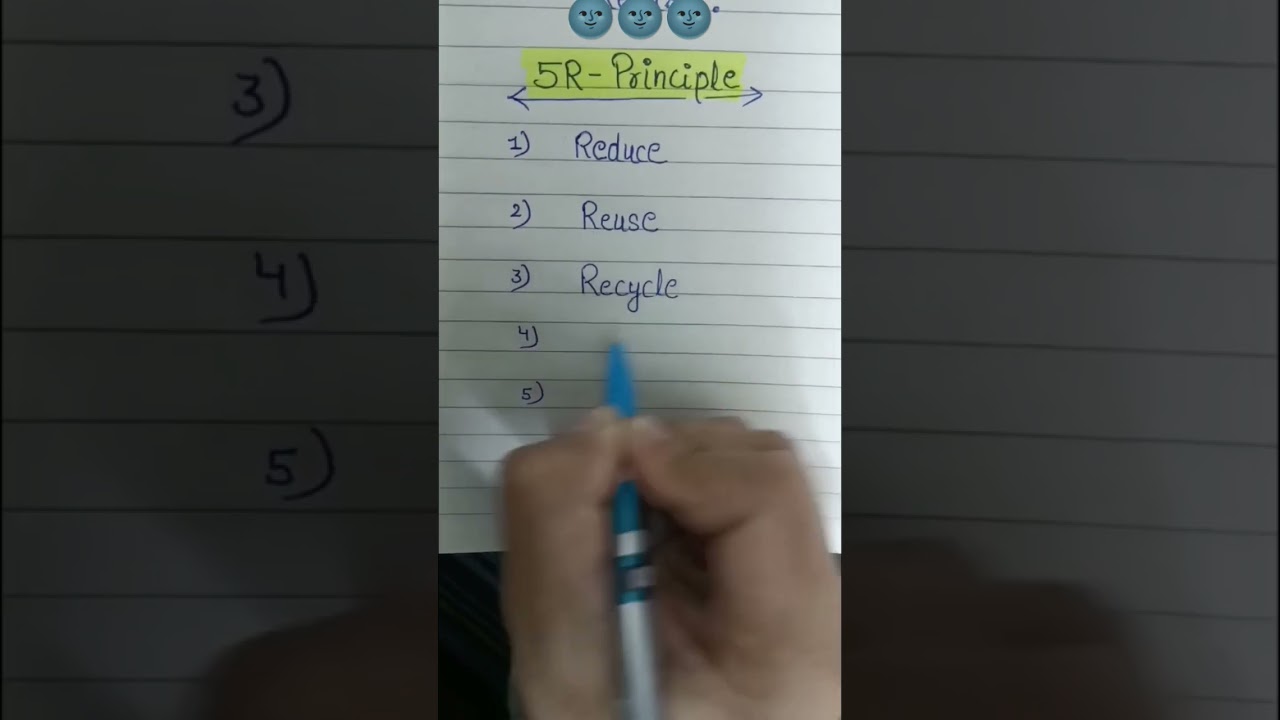 5R-Principle
1) Reduce
2) Reuse
3) Recycle
4)
5)
3)
4)
5)